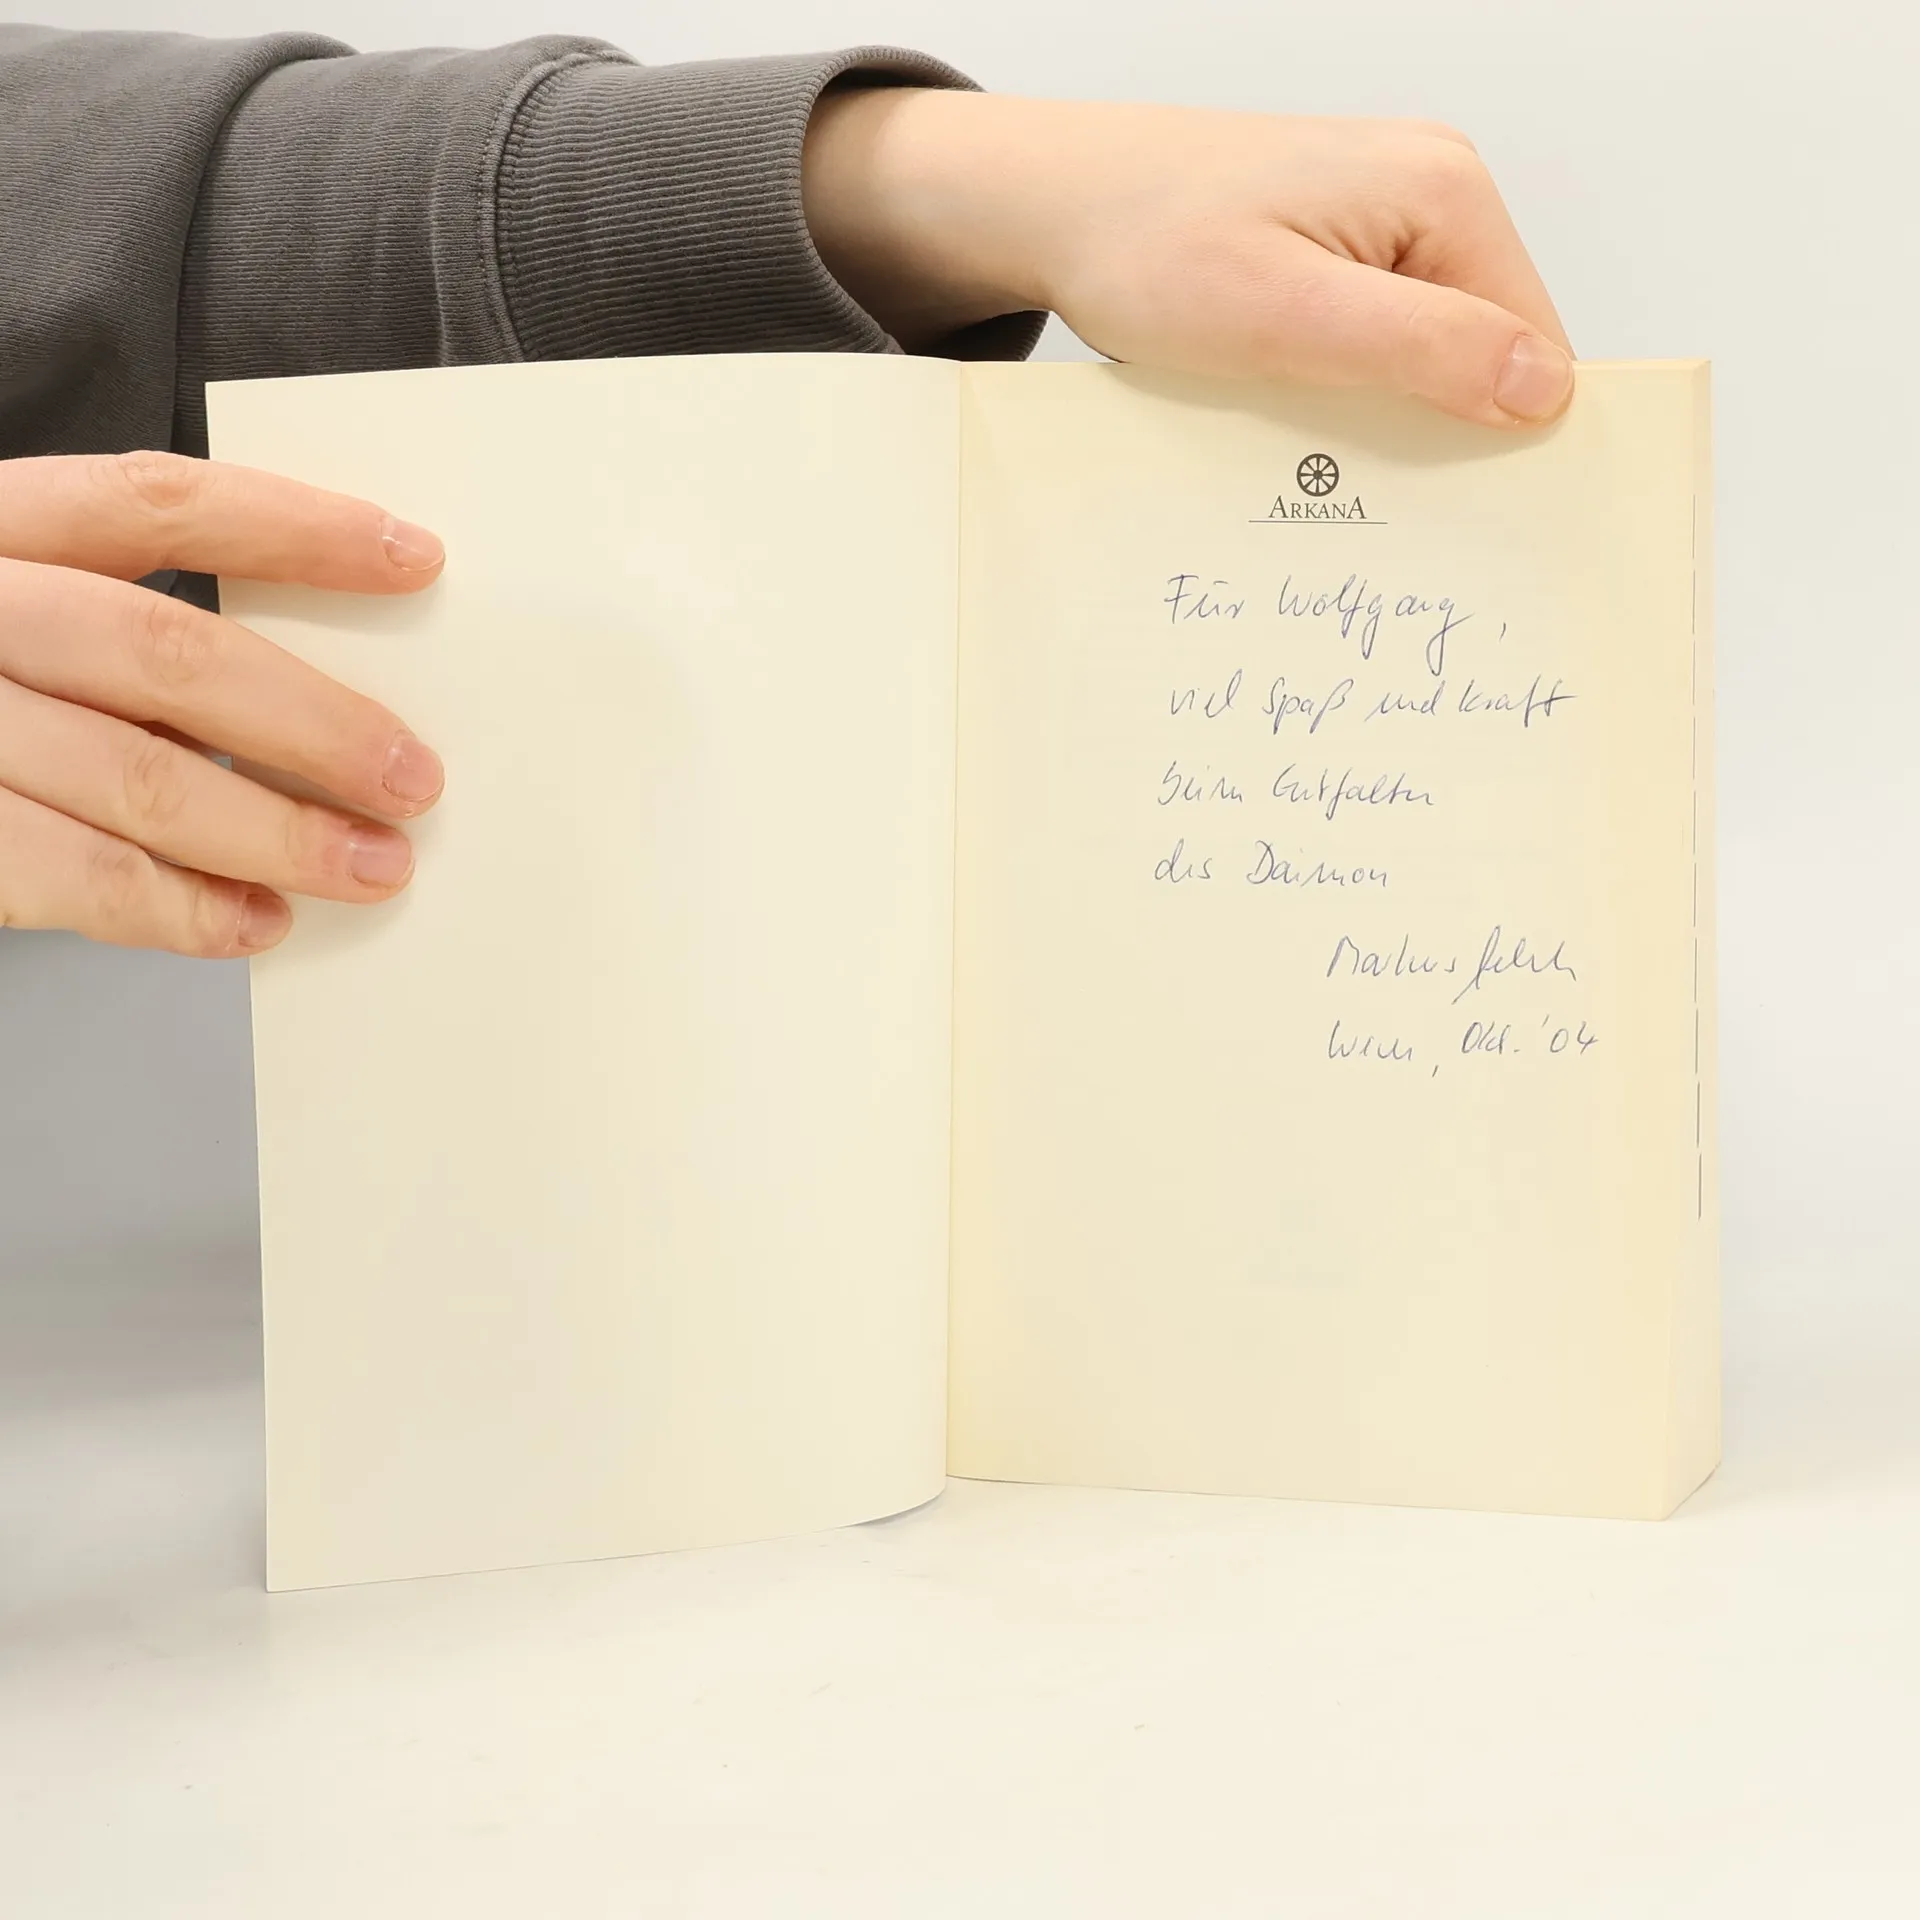 ARKANA
Für Wolfgang,
viel Spaß und Kraft
beim Entfalten
des Daimon
Markus
Wien, Okt. '04